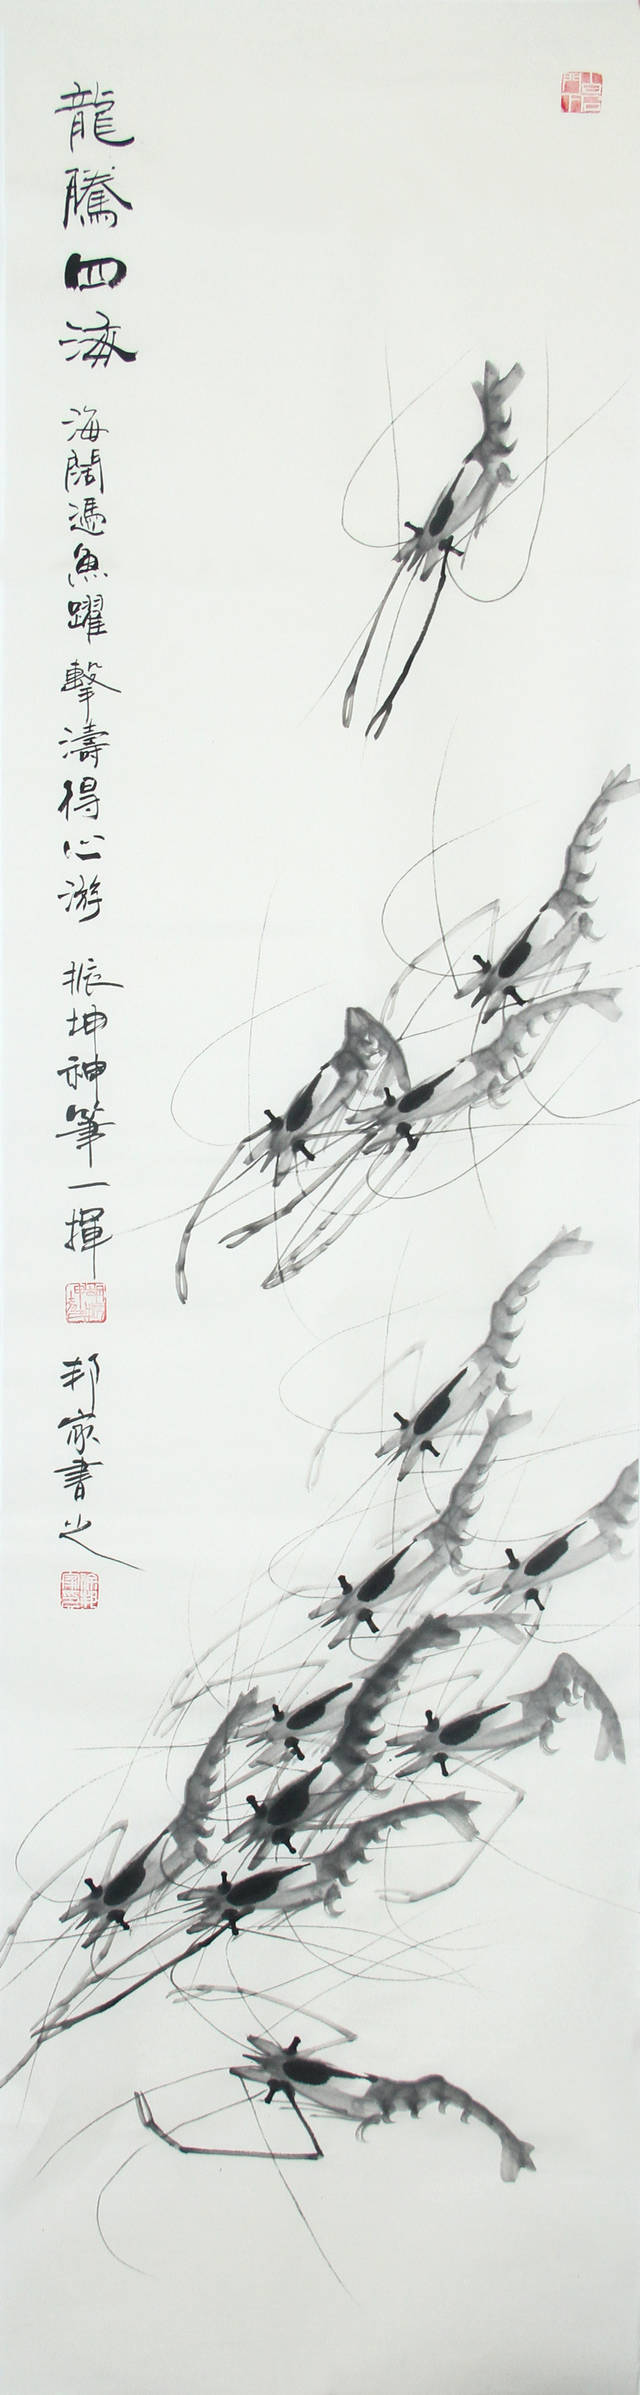 龍騰四海 海闊憑魚躍 擊濤得心游 振坤神筆一揮 邦家書之